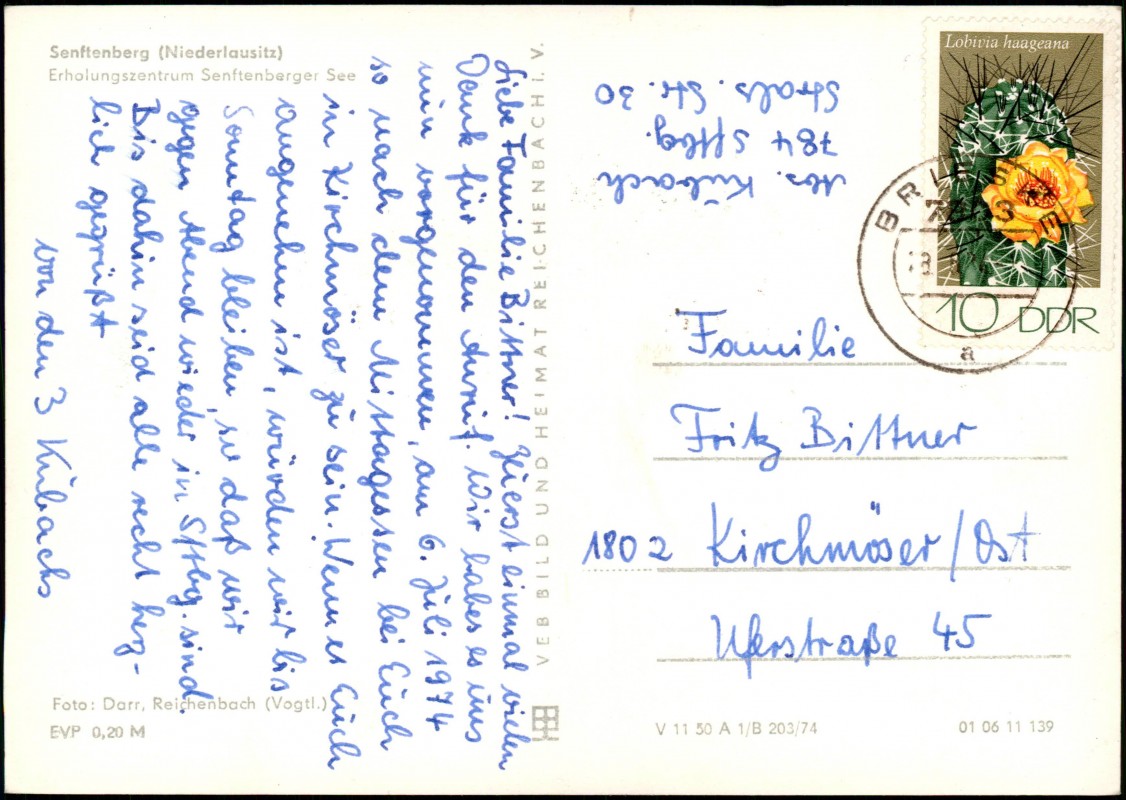 Senftenberg (Niederlausitz)
Erholungszentrum Senftenberger See
Liebe Familie Bittner! Zuerst einmal vielen
Dank für den Anruf. Wir habes es uns
nun vorgenommen, am 6. Juli 1974
so nach dem Mittagessen bei Euch
in Kirchmöser zu sein. Wenn es Euch
angenehm ist, würden wir bis
Sonntag bleiben, so daß wir
gegen Abend wieder in Sftbg. sind.
Bis dahin seid alle recht herz-
lich gegrüßt
von den 3 Kubachs
Foto: Darr, Reichenbach (Vogtl.)
EVP 0,20 M
VEB BILD UND HEIMAT REICHENBACH I. V.
Abs. Kubach
784 Sftbg.
Strals. Str. 30
Lobivia haageana
10 DDR
a
Familie
Fritz Bittner
1802 Kirchmöser/Ost
Uferstraße 45
V 11 50 A 1/B 203/74
01 06 11 139